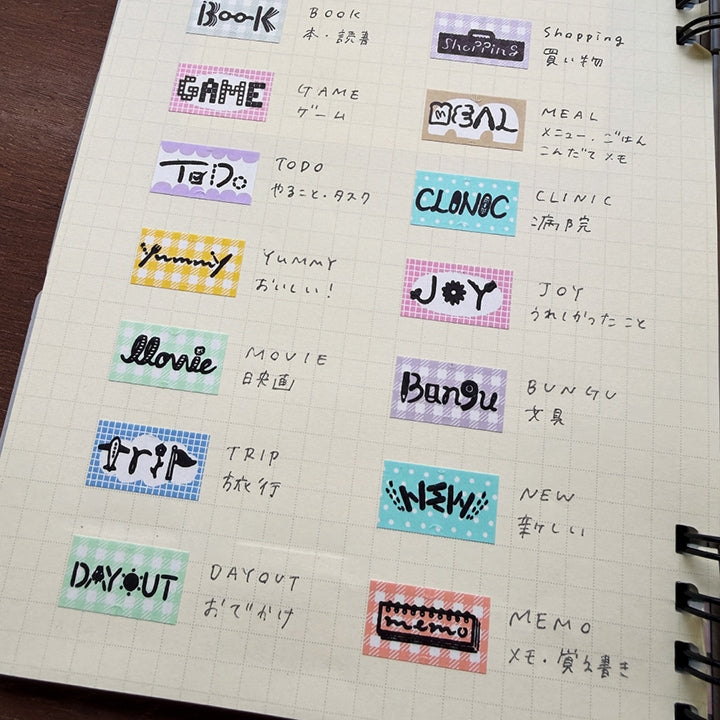 BOOK
BOOK
本・読書
GAME
GAME
ゲーム
ToDo
TODO
やること・タスク
Yummy
YUMMY
おいしい!
Movie
MOVIE
映画
TriP
TRIP
旅行
DAYOUT
DAYOUT
おでかけ
ShoPPiNg
Shopping
買い物
MEAL
MEAL
メニュー・ごはん
こんだてメモ
CLINIC
CLINIC
病院
JOY
JOY
うれしかったこと
Bungu
BUNGU
文具
NEW
NEW
新しい
memo
MEMO
メモ・覚え書き